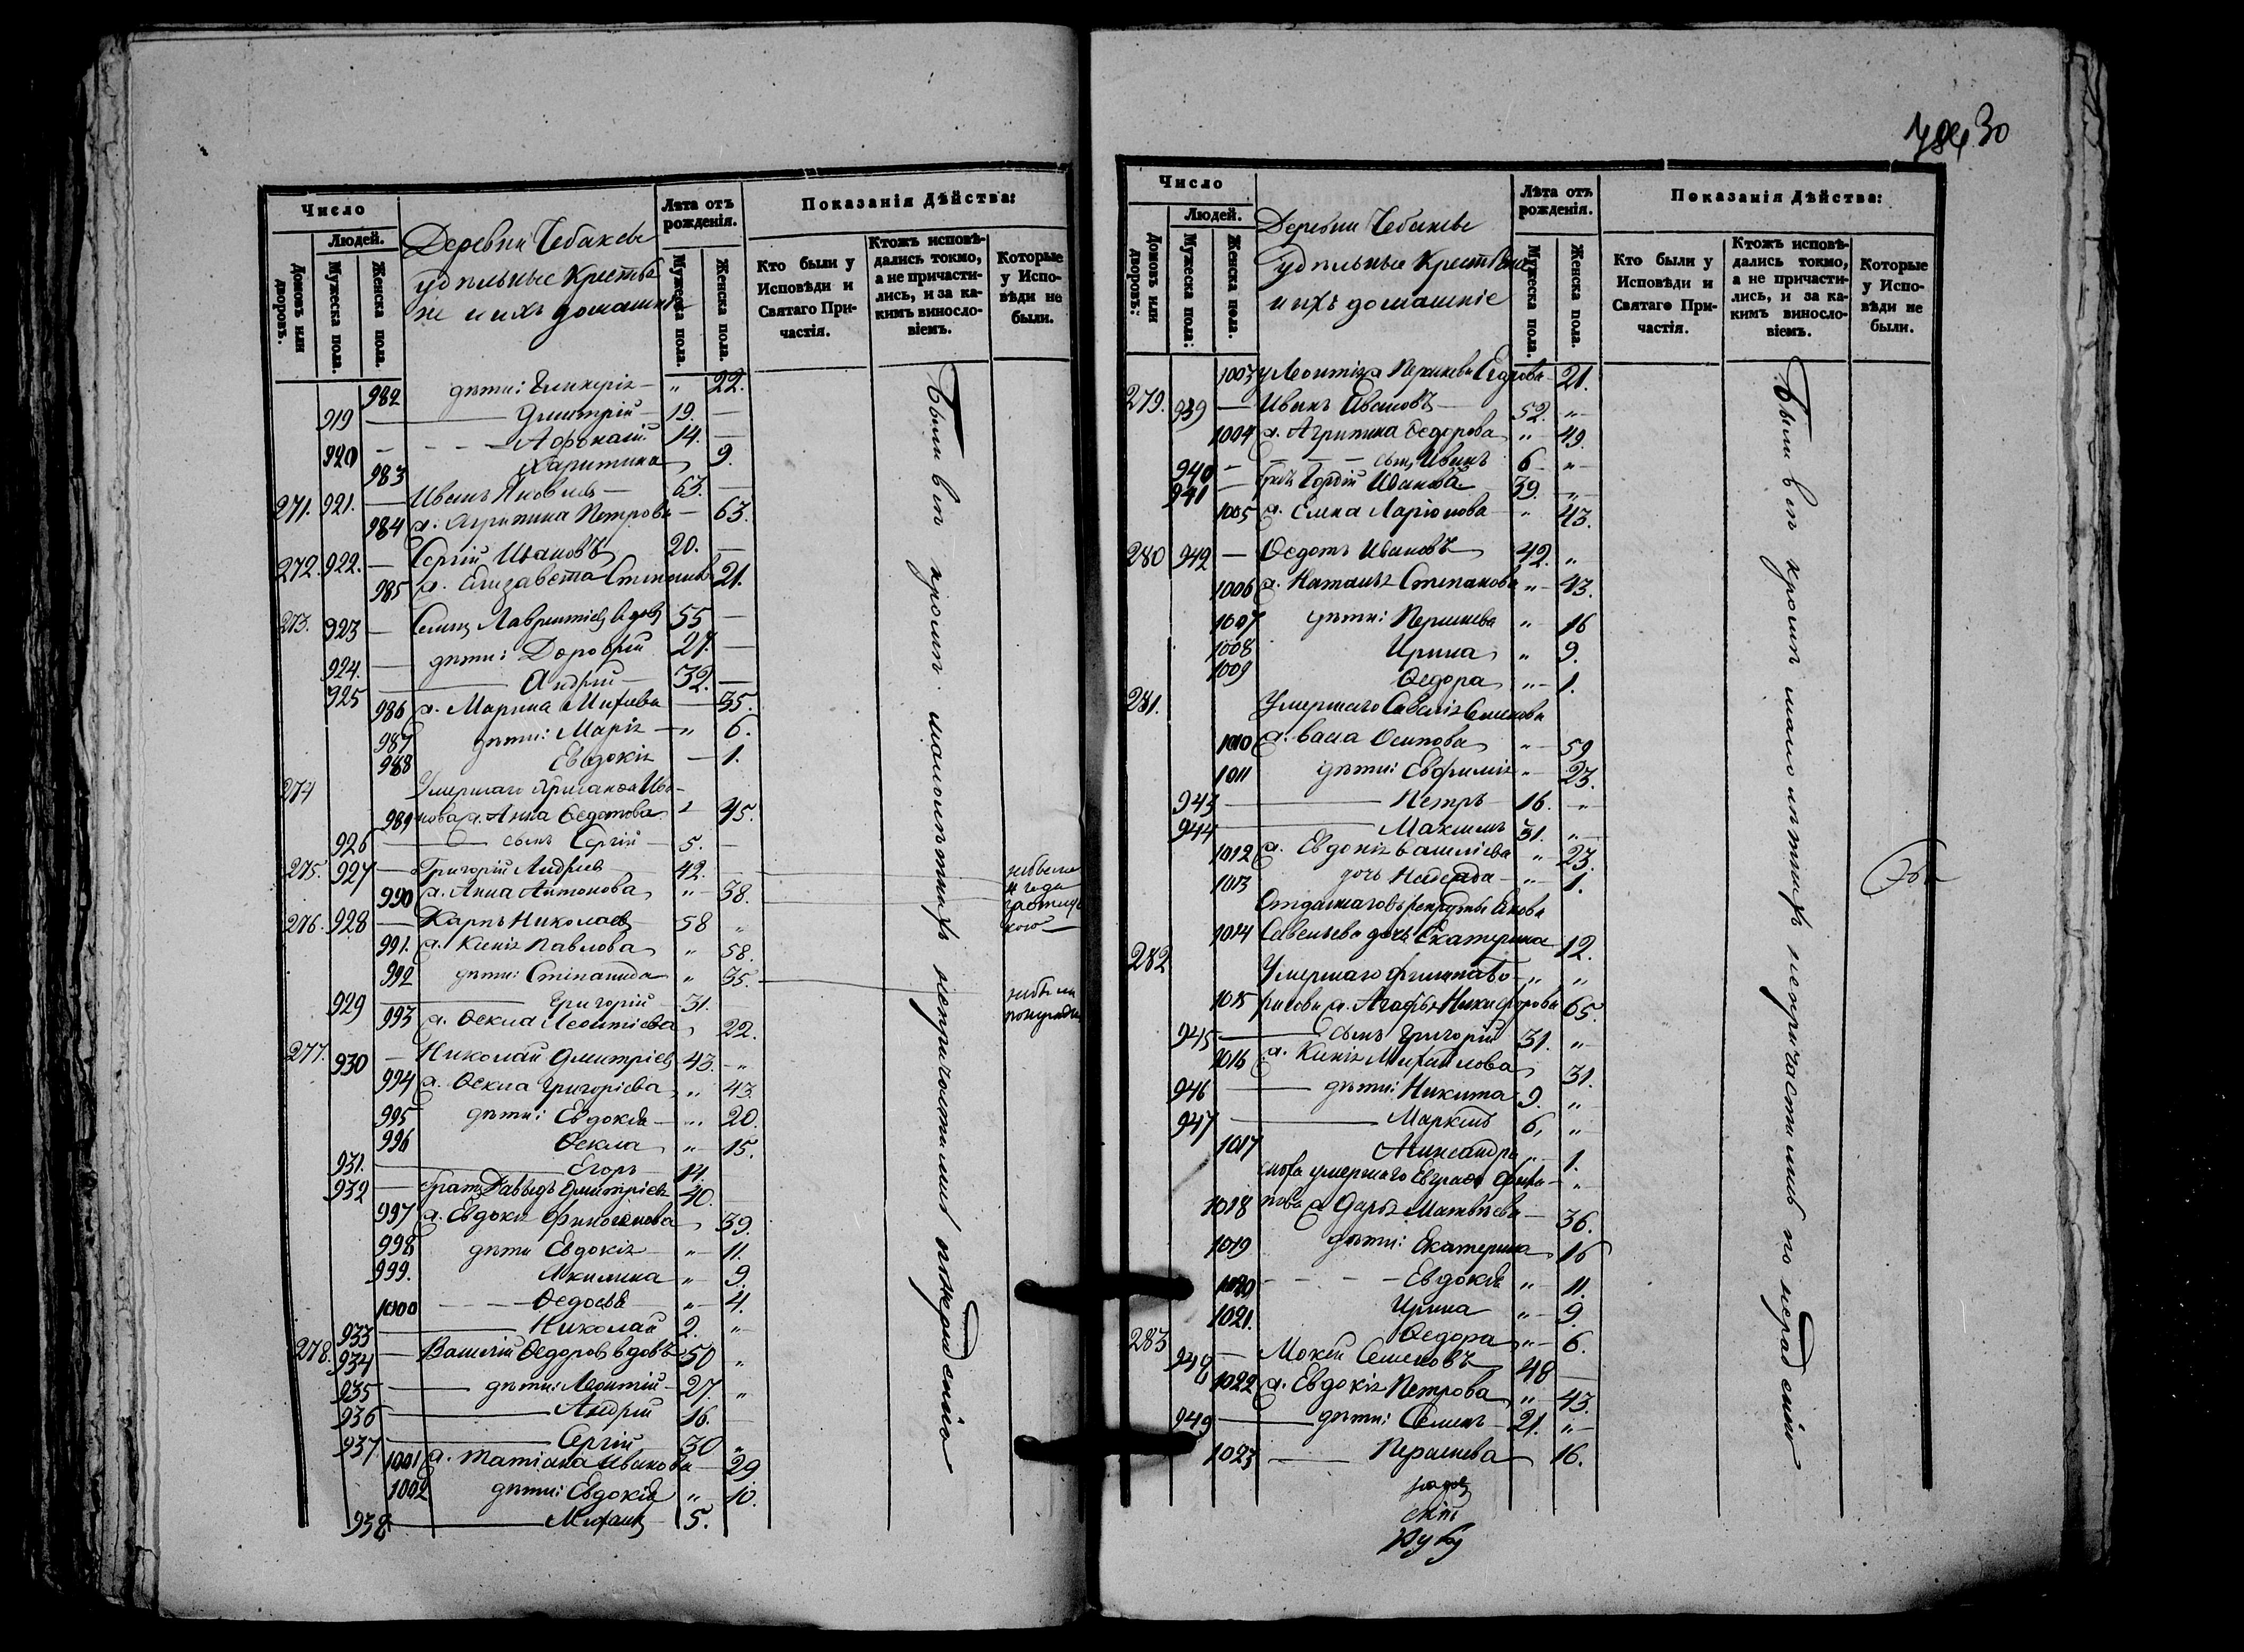 Число
Людей.
Домовъ или дворовъ.
Мужеска пола.
Женска пола.
Деревни Чебаксы
удѣльные крестья
не и ихъ домашніе
Лѣта отъ рожденія.
Мужеска пола.
Женска пола.
Показанія Дѣйства:
Кто были у Исповѣди и Святаго Причастія.
Ктожъ исповѣдались токмо, а не причастились, и за какимъ винословіемъ.
Которые у Исповѣди не были.
982 дѣти: Гликерія — „ 22.
919 — Дмитрій — 19. —
920 — Афонасій 14. —
983 Харитина 9.
271. 921. — Иванъ Яковлевъ — 63. —
984 ж. Агрипина Петрова — 63.
272. 922. — Сергій Ивановъ 20. —
985 ж. Елизавета Степанова 21.
273. 923 — Семенъ Лаврентіевъ вдовъ 55 —
924. — дѣти: Дорофей 27. —
925 — Андрей — 32. —
986 ж. Марина Михеева — 35.
987 дѣти: Марія — „ 6.
988 Евдокія — 1.
274 Умершаго Ива-
989 нова ж. Анна Федотова 45.
926 — сынъ Сергій — 5. —
275. 927 — Григорій Андреевъ 42.
990 ж. Анна Антонова „ 38.
276. 928 — Карпъ Николаевъ 58 „
991. ж. Ксенія Павлова „ 58.
992 дѣти: Степанида „ 35.
929 — Григорій — 31.
993 ж. Фекла Леонтіева 22.
277. 930 — Николай Дмитріевъ 43. „
994 ж. Фекла Григоріева „ 43.
995 дѣти: Евдокія — „ 20.
996 Фекла „ 15.
931. — Егоръ — 14.
932 — братъ Давыдъ Дмитріевъ 40.
997 ж. Евдокія Финогенова 39.
998 дѣти Евдокія „ 11.
999. Акилина „ 9.
1000 — Федосья „ 4.
933 — Николай 2. „
278. 934 — Василій Федоровъ вдовъ 50 „
935 — дѣти: Леонтій — 27. „
936 — Андрей 16.
937 — Сергій 30 „
1001 ж. Татіана Иванова — 29
1002 дѣти: Евдокія „ 10.
938 — Михаилъ 5.
Были всѣ кромѣ малолѣтнихъ непричастились по нерадѣнію
не были
4 года
не были
30
Число
Людей.
Домовъ или дворовъ:
Мужеска пола:
Женска пола.
Деревни Чебаксы
удѣльные крестьяне
и ихъ домашніе
Лѣта отъ рожденія.
Мужеска пола.
Женска пола.
Показанія Дѣйства:
Кто были у Исповѣди и Святаго Причастія.
Ктожъ исповѣдались токмо, а не причастились, и за какимъ винословіемъ.
Которые у Исповѣди не были.
1003 у Леонтія ж. Егорова 21.
279. 939 — Иванъ Ивановъ 52. „
1004 ж. Агрипина Федорова „ 49.
940 — сынъ Иванъ 6 „
941 — братъ Гордій Ивановъ 39. „
1005 ж. Елена Ларіонова „ 43.
280 942 — Федотъ Ивановъ 42. „
1006 ж. Наталья Степанова „ 43.
1007 дѣти: „ 16
1008 Ирина „ 9.
1009 Федора „ 1.
281. Умершаго Савелія Семенова
1010 ж. Васса Осипова „ 59
1011 дѣти: Евфимія „ 23.
943 — Петръ 16. „
944 — Максимъ 31. „
1012 ж. Евдокія Василіева „ 23.
1013 дочь „ 1.
Отданнаго въ рекруты Якова
1014 Савельева дочь Екатерина 12.
282 Умершаго Филиппа „ „
1015 ж. Агафья Никифорова 65.
945 — сынъ Григорій 31. „
1016 ж. Ксенія Михайлова 31.
946 — дѣти: Никита 9. „
947 — Маркелъ 6, „
1017 Александра „ 1.
сноха умершаго Евграфа Филип- „
1018 пова ж. Дарья Матвѣева — 36.
1019 дѣти: Екатерина 16
1020 — Евдокія „ 11.
1021. Ирина „ 9.
Федора „ 6.
283 948 — Мокей Семеновъ 48
1022 ж. Евдокія Петрова „ 43.
949 — дѣти: Семенъ 21. „
1023 — 16.
Были всѣ кромѣ малолѣтнихъ непричастились по нерадѣнію